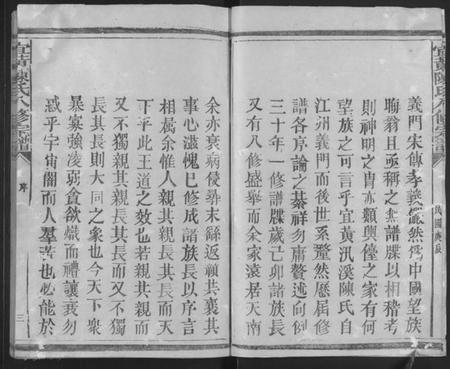 義門宋傳孝義儼然爲中國望族
晦翁且亟稱之其譜牒以相稽考
則神明之胄亦類輿儓之家有何
望族之可言乎宜黃汎溪陳氏自
江州義門而後世系釐然歷屆修
譜各序論之綦祥勿庸贅述向例
三十年一修譜牒歲己卯諸族長
有八修盛舉而余家遠居天南
余亦衰病侵尋未能返襄其
事心滋愧已修成諸族長以序言
相屬余惟人親其親長其長而天
下平此王道之效也若親其親而
又不獨親其親長其長而又不獨
長其長則大同之象也今天下衆
暴寡強凌弱貪欲熾而禮讓衰勿
或乎宇宙闇而人羣苦也必能於
宜黃陳氏八修宗譜
序
三
宜黃陳氏八修宗譜
民國庚辰